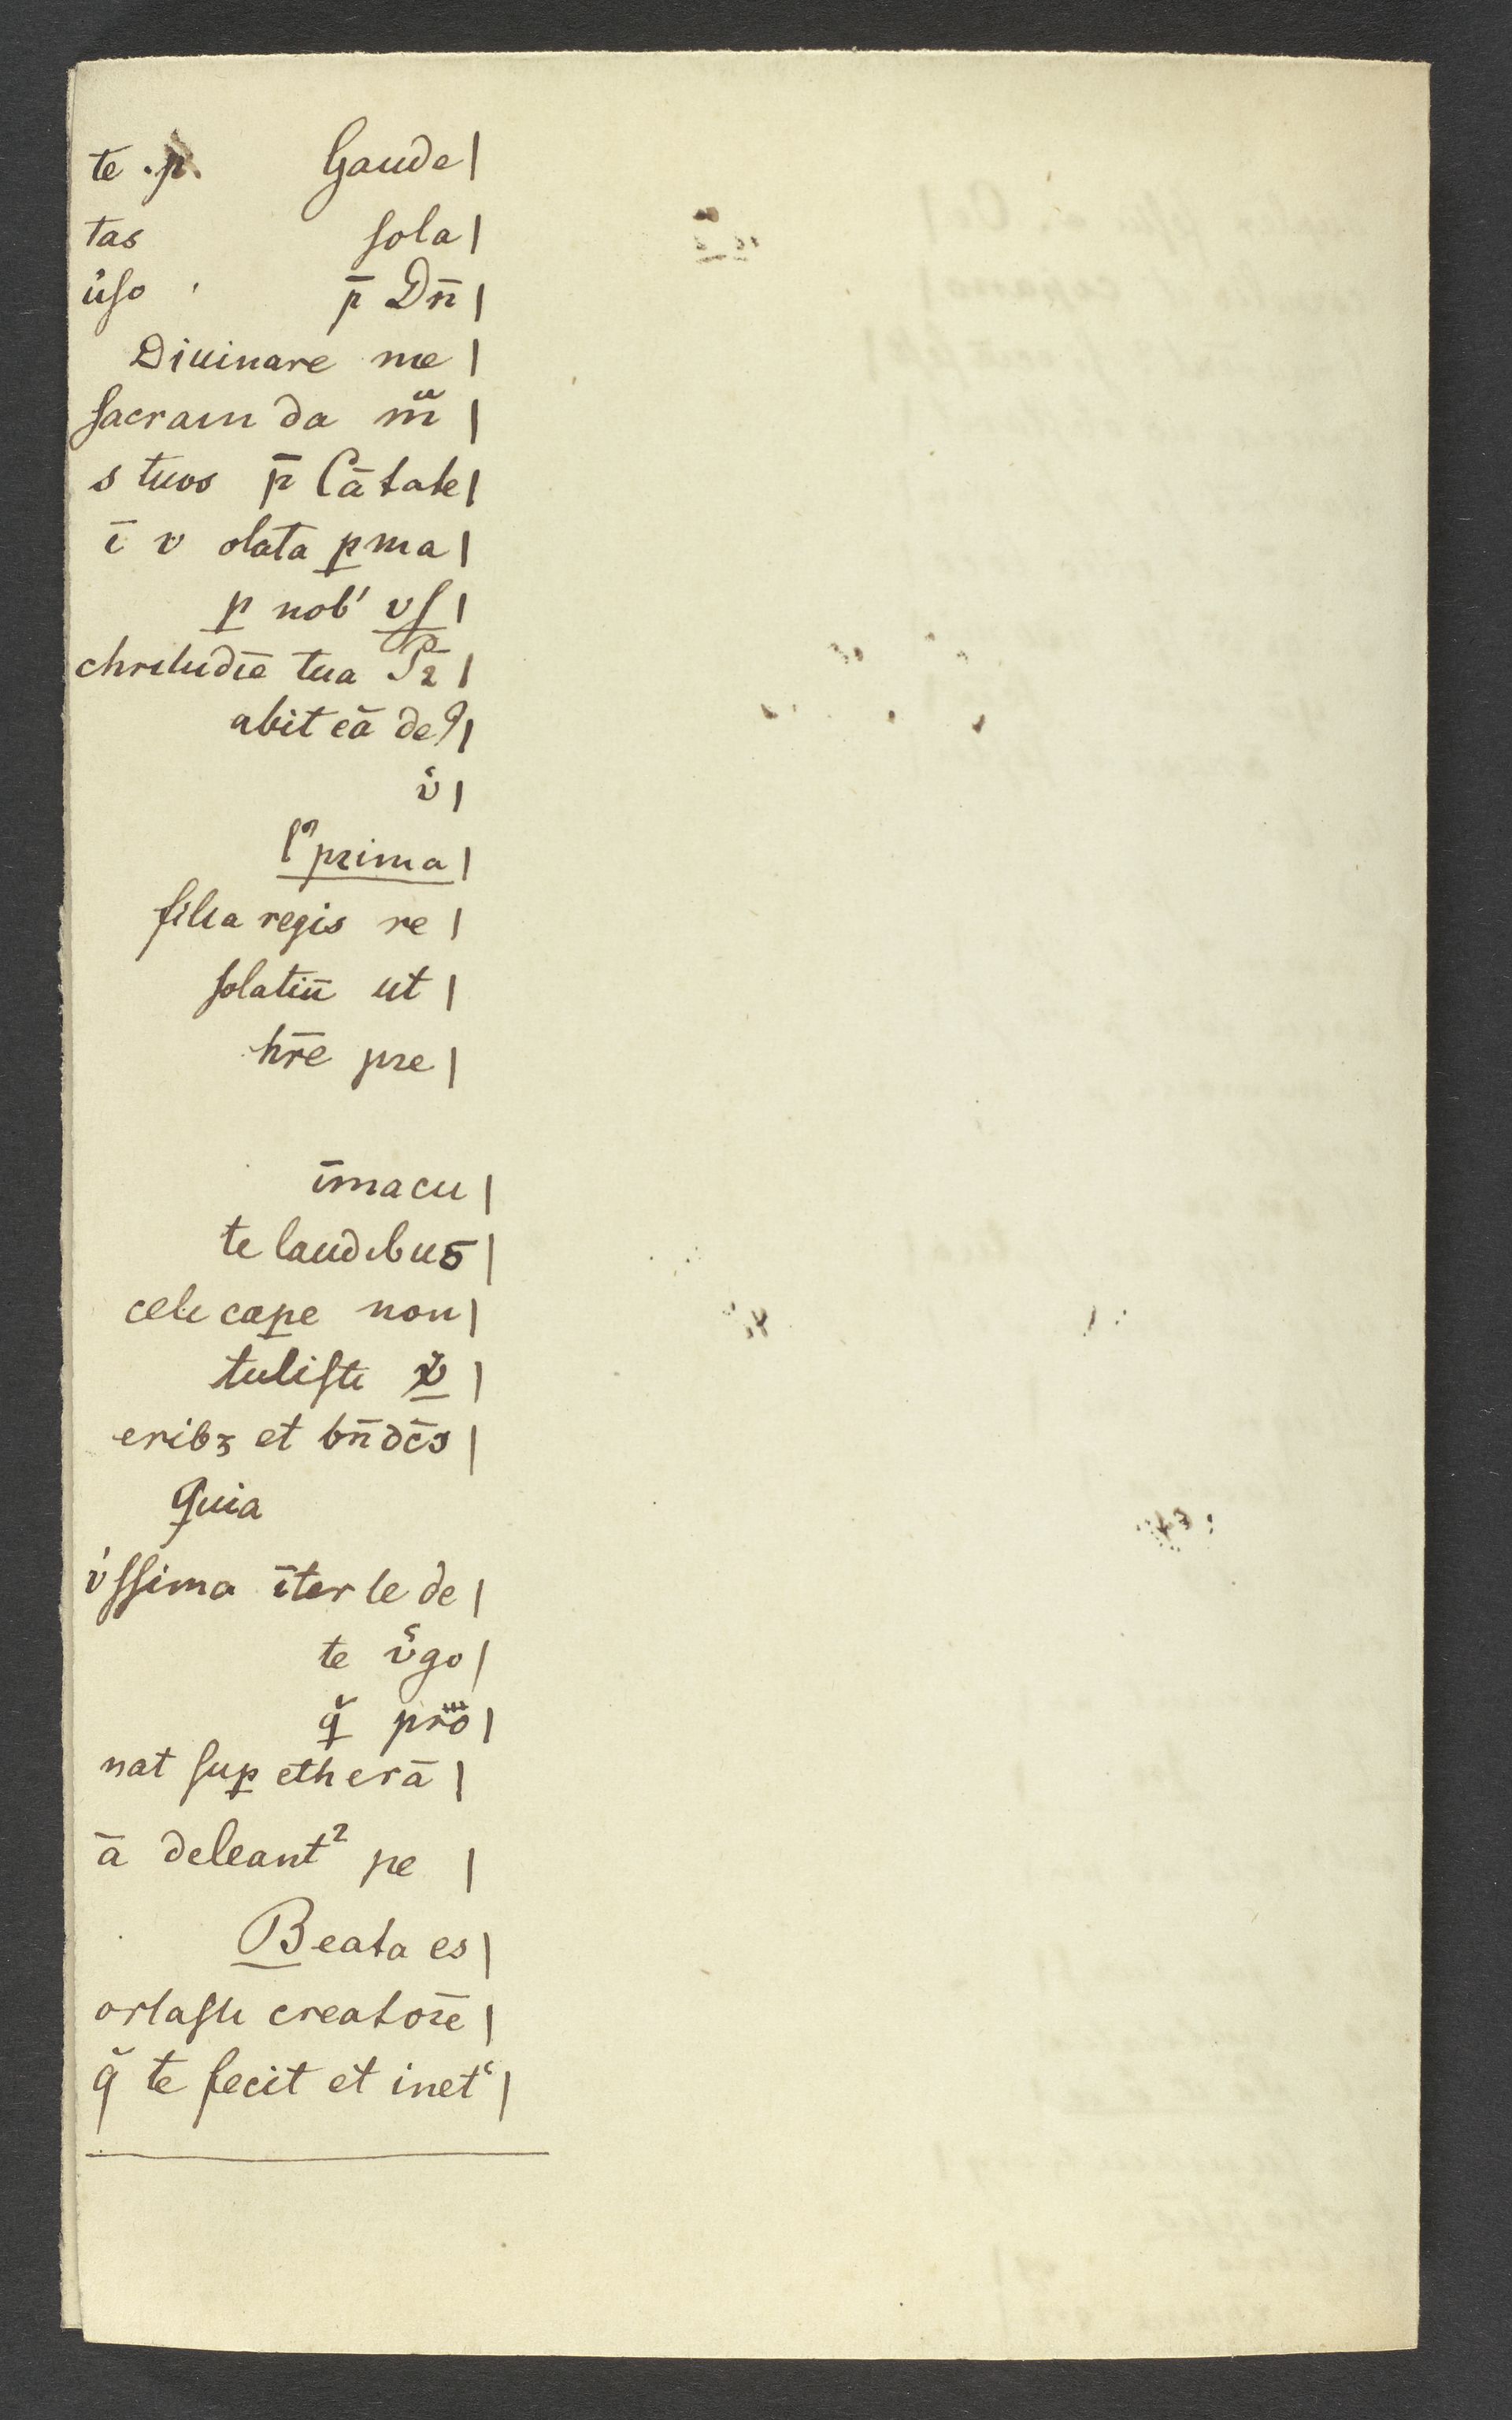 te .p. Gaude|
tas ſola|
úſo p̄ Dn̄|
Diuinare me|
ſacram da m̄|
s tuos p̄ Cātate|
ī v olata ꝑma|
ꝑ nob' vſ|
tua
abit eā deꝰ|
v̆|
prima|
filia regis re|
ſolatiū ut|
hr̄e pre|
īmacu|
te laudibus|
celi caꝑe non|
tuliſti v̆|
eribꝫ et bn̄dc̄s|
Quia
v́ſſima īter le de|
te v̆go|
q̆ pro|
nat ſuꝑ etherā|
ā deleant² pe|
Beata es|
ortaſti creatorē|
q̆ te fecit et inet'|